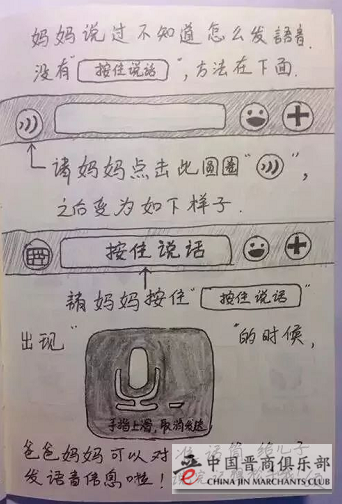 妈妈说过不知道怎么发語音.
没有"按住说话",方法在下面.
请妈妈点击此圆圈"",
之后变为如下样子.
按住说话
請妈妈按住"按住说话"
出现""的时候,
手指上滑,取消发送
爸爸妈妈可以对
发语音信息啦!
中国晋商俱乐部
CHINA JIN MERCHANTS CLUB